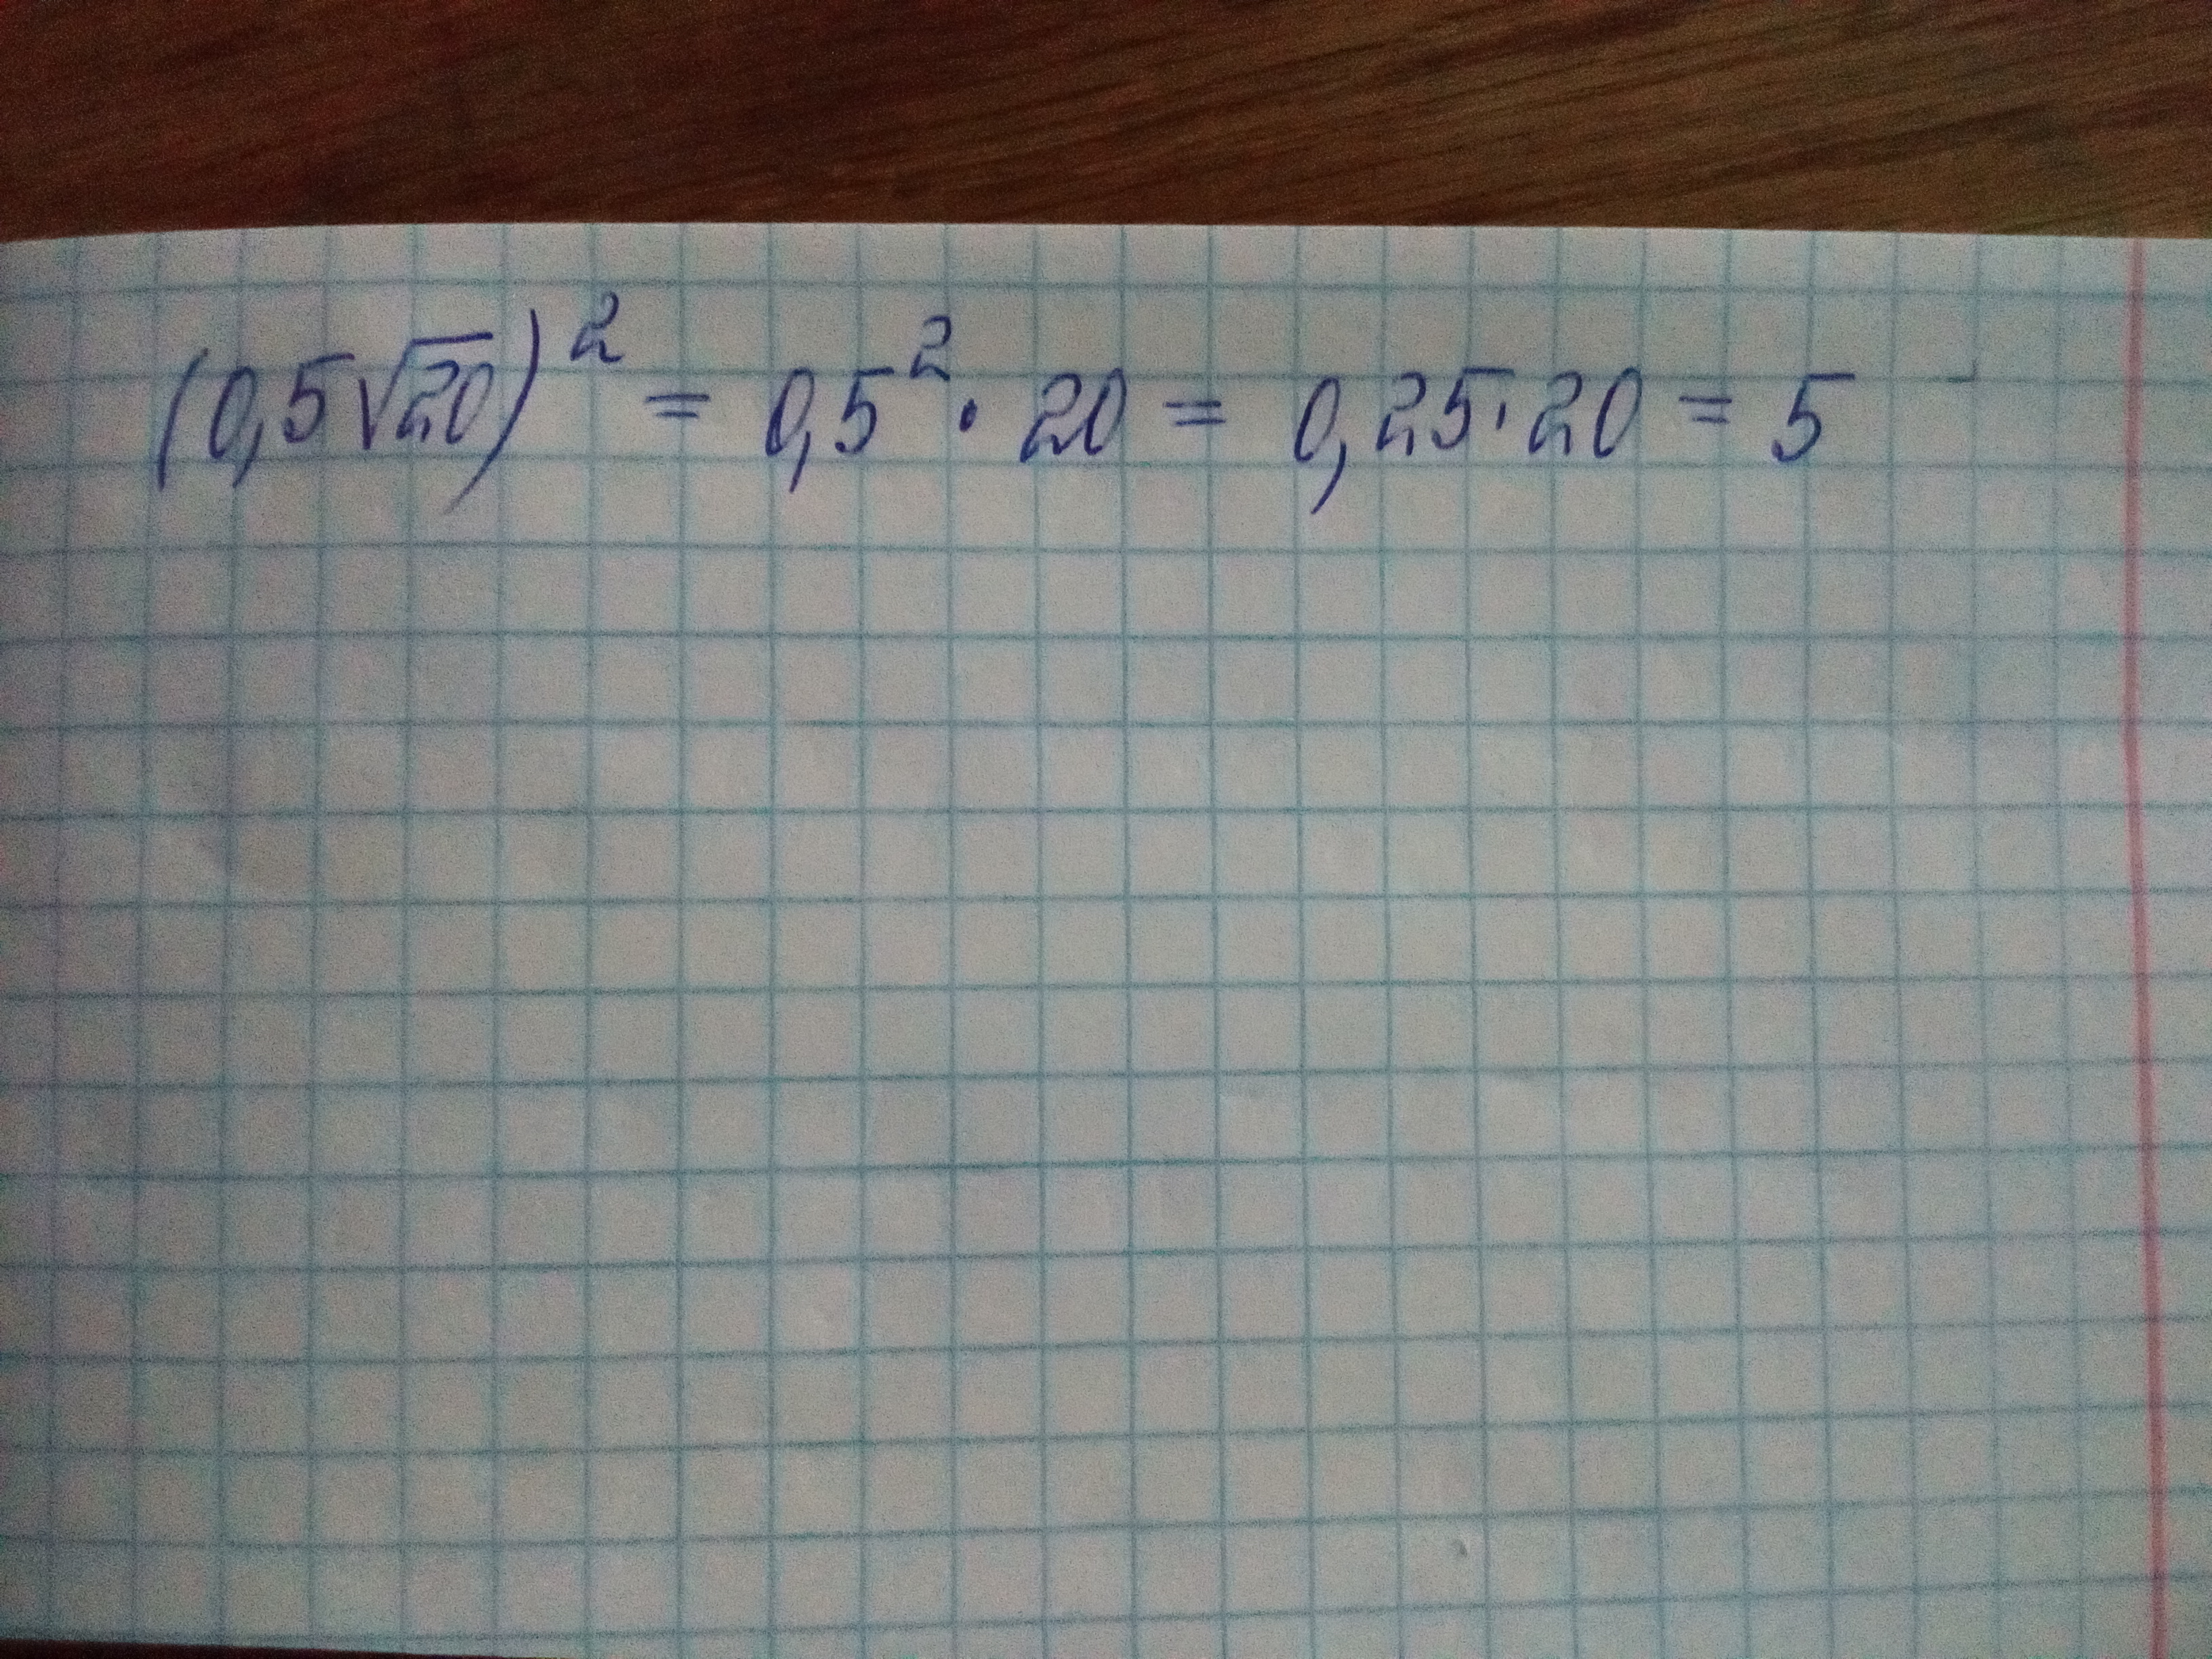 (0,5√20)² = 0,5² · 20 = 0,25 · 20 = 5